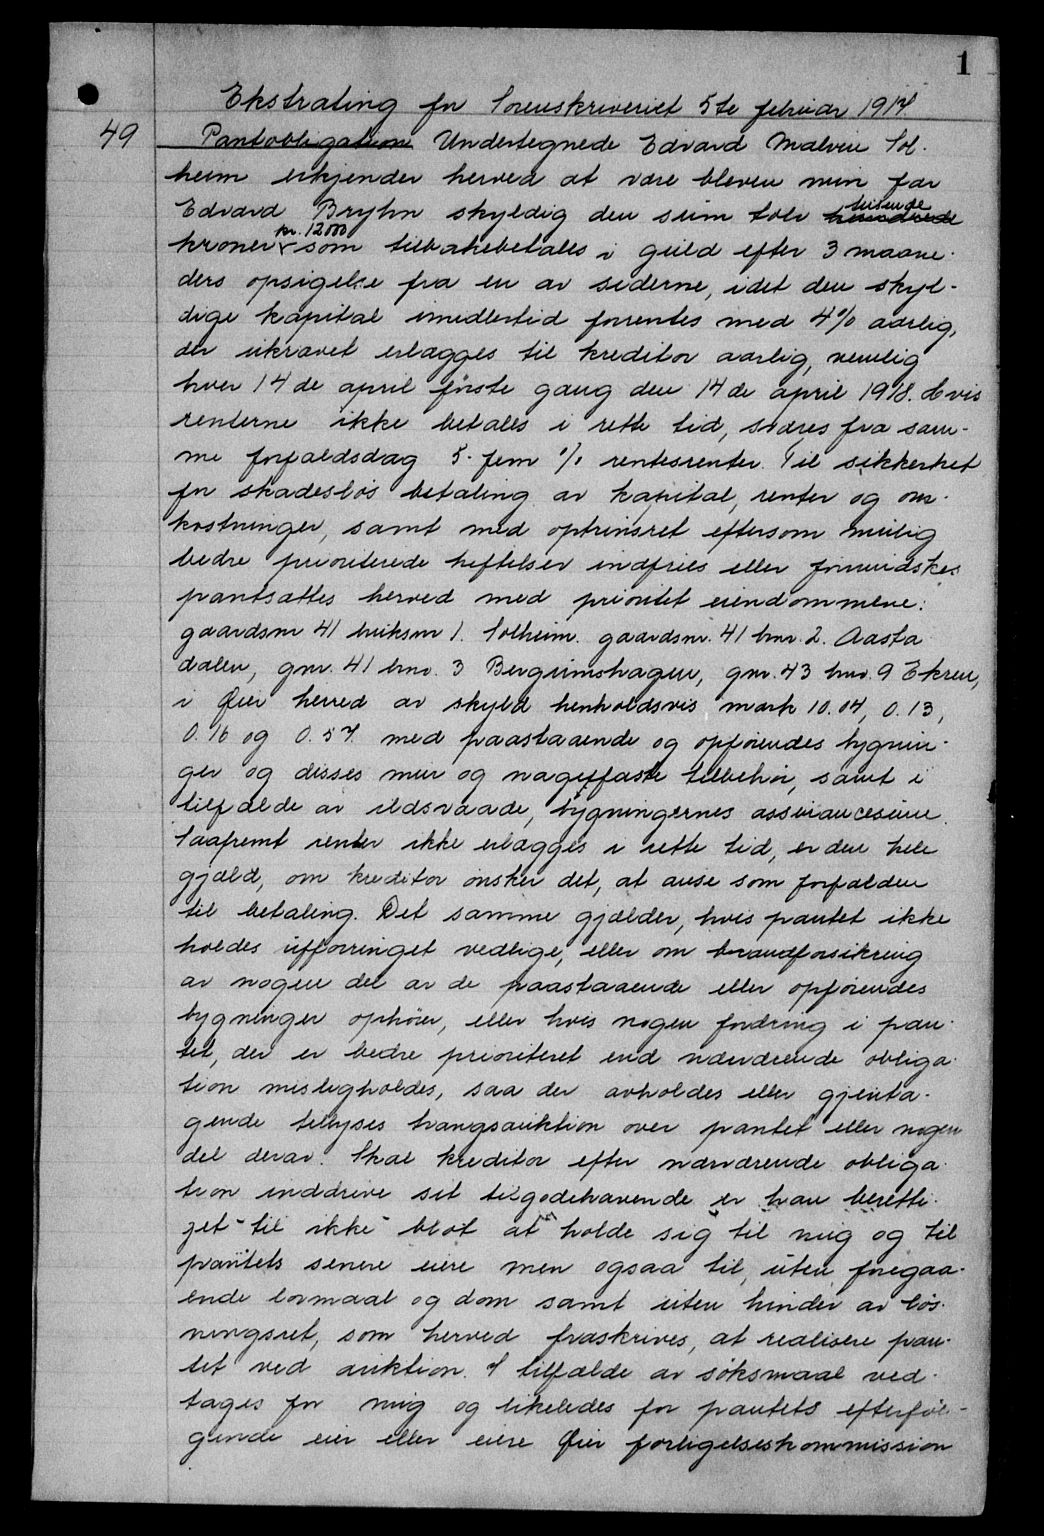 1
Ekstrating for Sorenskriveriet 5te februar 1917.
49 Pantobligation Undertegnede Edvard Malvin Sol-
heim erkjender herved at være bleven min far
Edvard Bryhn skyldig den sum tolv hundrede tusende
kroner kr. 12000 som tilbakebetales i guld efter 3 maane-
ders opsigelse fra en av siderne, idet den skyl-
dige kapital imedlertid forrentes med 4% aarlig,
der ukrævet erlægges til kreditor aarlig, nemlig
hver 14de april første gang den 14de april 1918. Hvis
renterne ikke betales i rette tid, svares fra sam-
me forfaldsdag 5-fem % rentesrenter. Til sikkerhet
for skadesløs betaling av kapital, renter og om-
kostninger, samt med optrinsret eftersom mulig
bedre prioriterede heftelser indfries eller formindskes
pantsættes herved med prioritet eiendommene:
gaardsnr 41 bruksnr 1. Solheim. gaardsnr. 41 bnr. 2. Aasta
dalen, gnr. 41 bnr. 3 Bergumshagen, gnr. 43 bnr. 9 Ekren,
i Øier herred av skyld henholdsvis mark 10.04, 0.13,
0.16 og 0.57. med paastaaende og opføiendes bygnin-
ger og disses mur og nagelfaste tilbehør, samt i
tilfælde av ildsvaade, bygningernes assurancesum.
Saafremt renter ikke erlægges i rette tid, er den hele
gjæld, om kreditor ønsker det, at anse som forfalden
til betaling. Det samme gjælder, hvis pantet ikke
holdes uforringet vedlige, eller om brandforsikring
av nogen del av de paastaaende eller opføiendes
bygninger ophører, eller hvis nogen fordring i pan-
tet, der er bedre prioriteret end nærværende obliga-
tion misligholdes, saa der avholdes eller gjenta-
gende tillyses tvangsauktion over pantet eller nogen
del derav. Skal kreditor efter nærværende obliga-
tion inddrive sit tilgodehavende er han beretti-
get til ikke blot at holde sig til mig og til
pantets senere eiere men ogsaa til, uten foregaa-
ende lovmaal og dom samt uten hinder av løs-
ningsret, som herved fraskrives, at realisere pan-
tet ved auktion. I tilfælde av søksmaal ved-
tages for mig og likeledes for pantets efterføl-
gende eier eller eiere Øier forligelseskommission